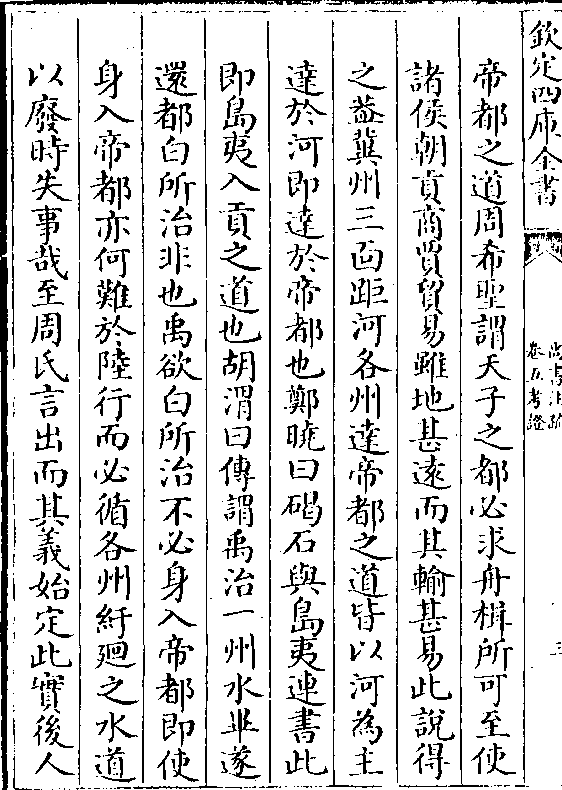 欽定四庫全書
尚書注疏
卷五考證
三
帝都之道周希聖謂天子之都必求舟楫所可至使
諸侯朝貢商賈貿易雖地甚遠而其輸甚易此說得
之葢冀州三面距河各州達帝都之道皆以河為主
達於河即達於帝都也鄭曉曰碣石與島夷連書此
即島夷入貢之道也胡渭曰傳謂禹治一州水畢遂
還都白所治非也禹欲白所治不必身入帝都即使
身入帝都亦何難於陸行而必循各州紆廻之水道
以廢時失事哉至周氏言出而其義始定此實後人